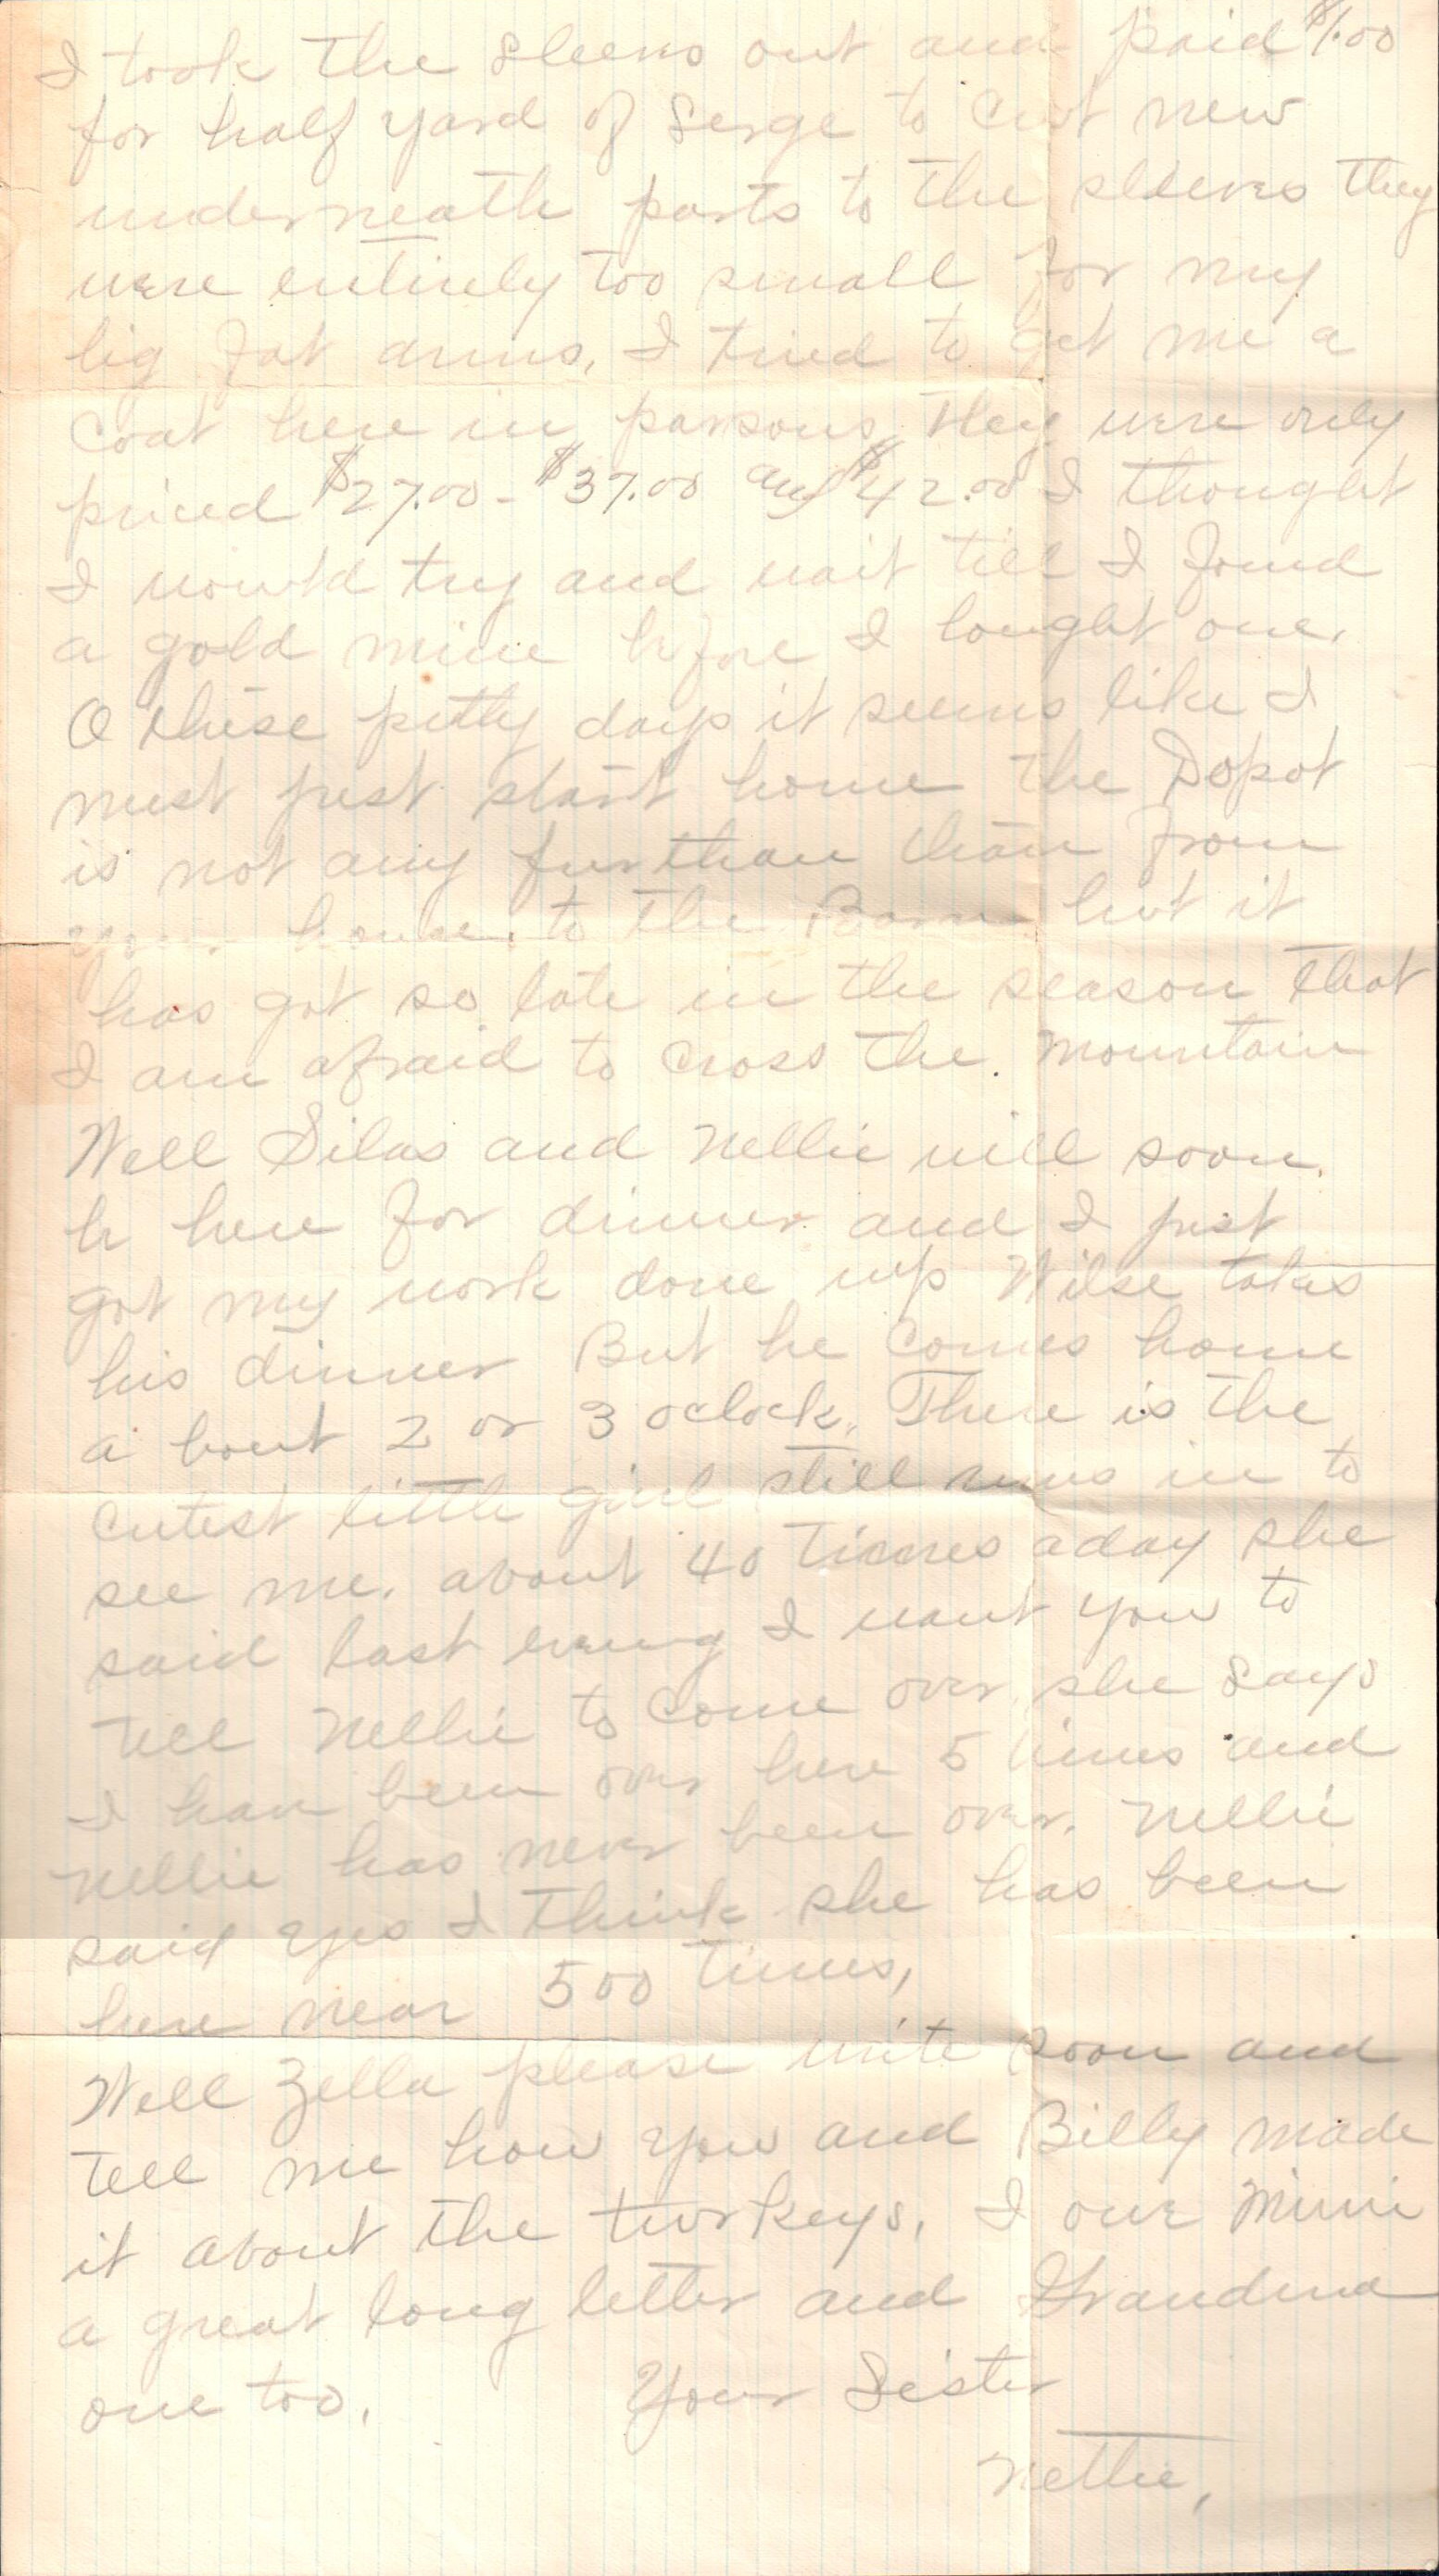 I took the sleevs out and paid $1.00
for half yard of Serge to cut new
underneath parts to the sleeves they
were entirely too small for my
big fat arms, I tried to get me a
Coat here in parsons, they were only
priced $27.00 - $37.00 and $42.00 I thought
I would try and wait till I found
a gold mine before I bought one.
O these pretty days it seems like I
must just start home the Depot
is not any furthan than from
your house to the Barn but it
has got so late in the season that
I am afraid to cross the mountain
Well Silas and Nellie will soon
be here for dinner and I just
got my work done up Wilse takes
his dinner But he comes home
a bout 2 or 3 oclock. There is the
cutest little girl still runs in to
see me. about 40 times aday she
said last evening I want you to
tell Nellie to come over she says
I have been over here 5 times and
Nellie has never been over. Nellie
said yes I think she has been
here near 500 times,
Well Zella please write soon and
tell me how you and Billy made
it about the turkeys, I owe Minie
a great long letter and Grandma
one too. Your Sister
Nettie,